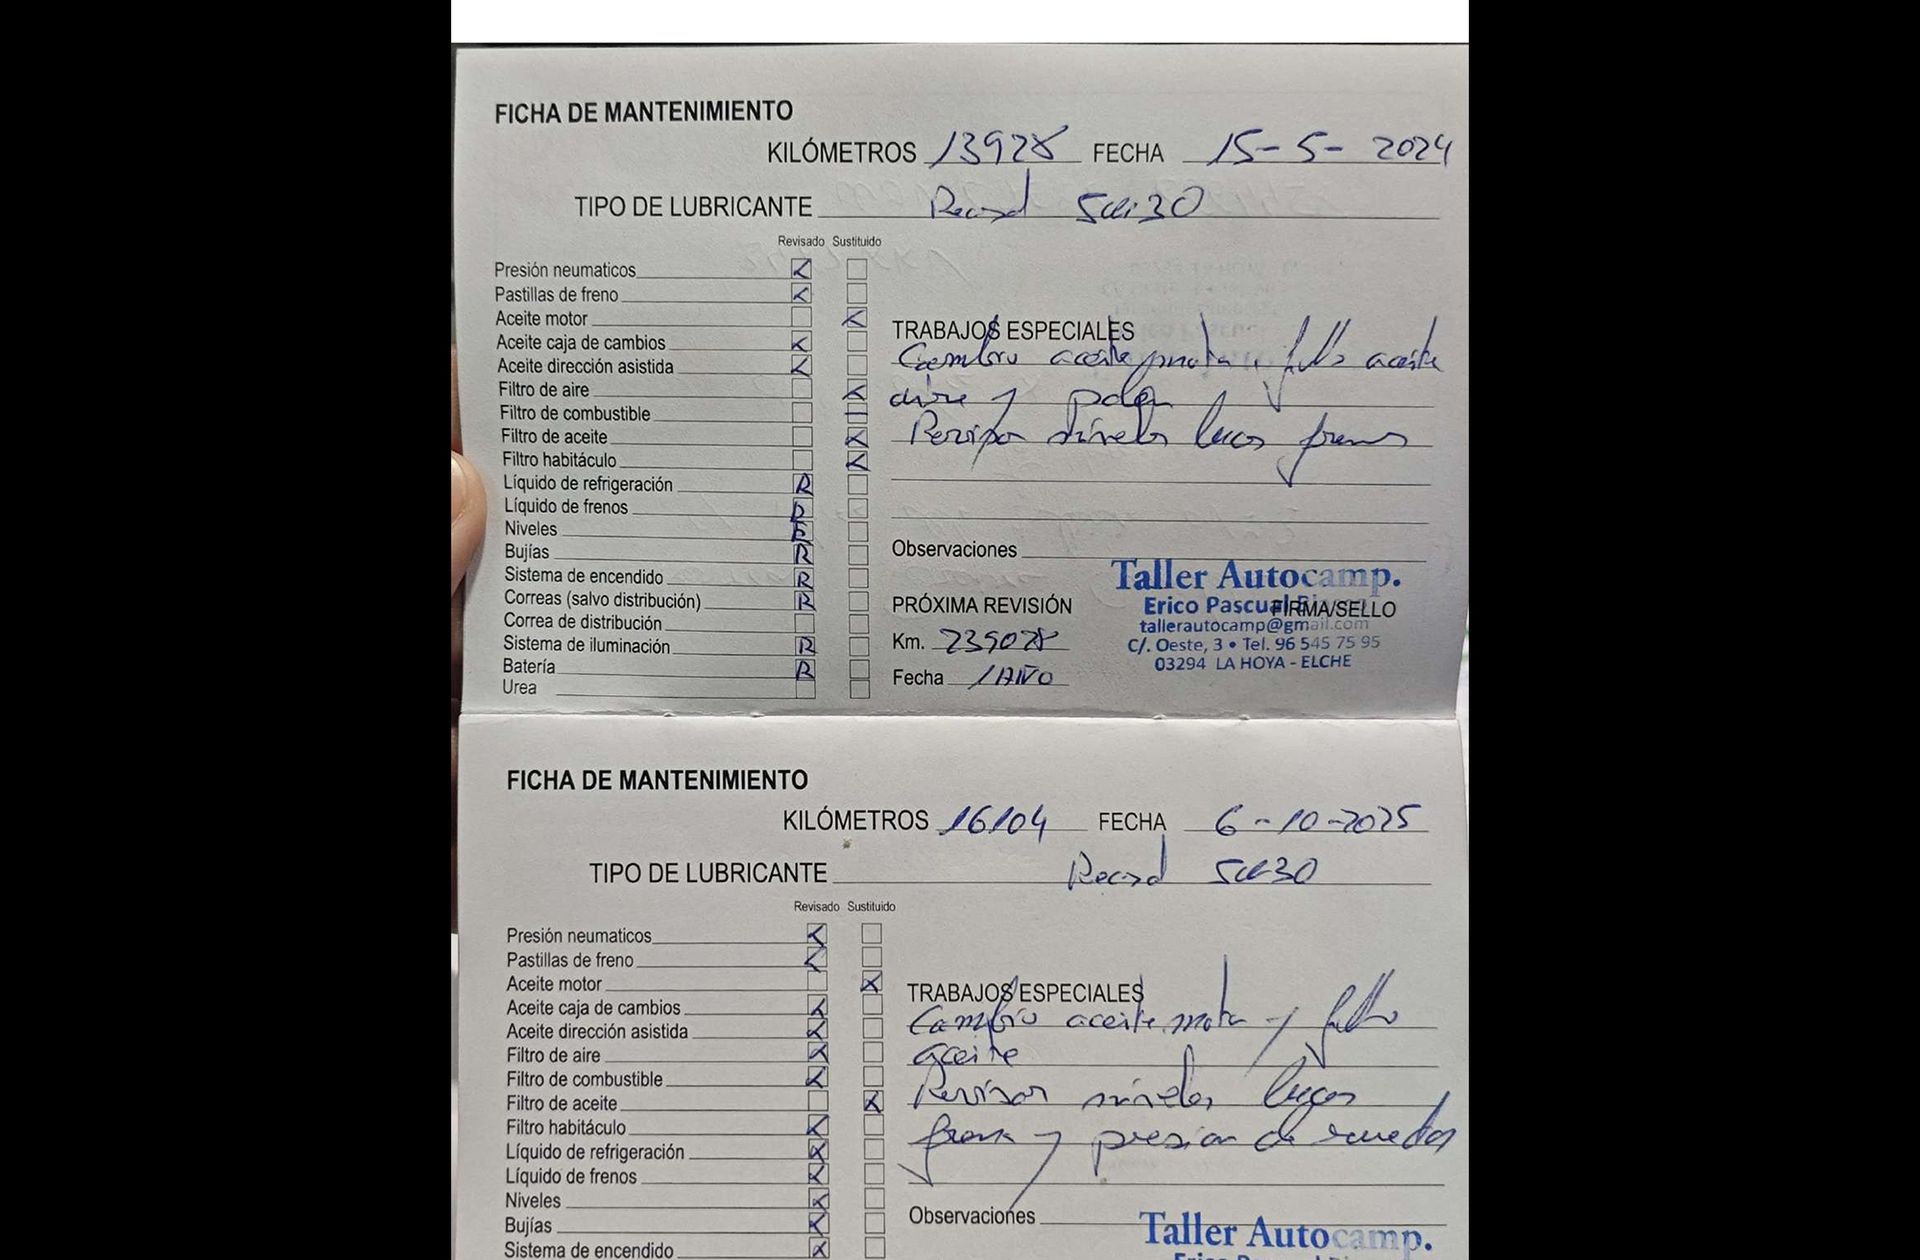 FICHA DE MANTENIMIENTO
KILÓMETROS 13928 FECHA 15-5-2024
TIPO DE LUBRICANTE Record 5W30
Revisado Sustituido
Presión neumaticos
Pastillas de freno
Aceite motor
Aceite caja de cambios
Aceite dirección asistida
Filtro de aire
Filtro de combustible
Filtro de aceite
Filtro habitáculo
Líquido de refrigeración R
Líquido de frenos R
Niveles R
Bujías R
Sistema de encendido R
Correas (salvo distribución) R
Correa de distribución
Sistema de iluminación R
Batería R
Urea
TRABAJOS ESPECIALES
Cambio aceite motor, filtro aceite
aire y polen
Revisar niveles luces frenos
Observaciones
PRÓXIMA REVISIÓN
Km. 239028
Fecha 1 AÑO
Taller Autocamp.
Erico Pascual
FIRMA/SELLO
tallerautocamp@gmail.com
C/. Oeste, 3 • Tel. 96 545 75 95
03294 LA HOYA - ELCHE
FICHA DE MANTENIMIENTO
KILÓMETROS 16104 FECHA 6-10-2025
TIPO DE LUBRICANTE Record 5W30
Revisado Sustituido
Presión neumaticos
Pastillas de freno
Aceite motor
Aceite caja de cambios
Aceite dirección asistida
Filtro de aire
Filtro de combustible
Filtro de aceite
Filtro habitáculo
Líquido de refrigeración
Líquido de frenos
Niveles
Bujías
Sistema de encendido
TRABAJOS ESPECIALES
Cambio aceite motor y filtro
aceite
Revisar niveles luces
frenos y presion de ruedas
Observaciones
Taller Autocamp.